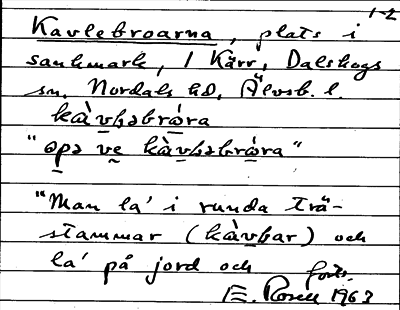 1-2
Kavlebroarna, plats i
sankmark, 1 Kärr, Dalskogs
sn, Nordals hd, Älvsb. l.
kàvləbróra
"əpə ve kàvləbróra"
"Man la' i runda trä-
stammar (kàvlar) och
la' på jord och forts.
E. Rosell 1963